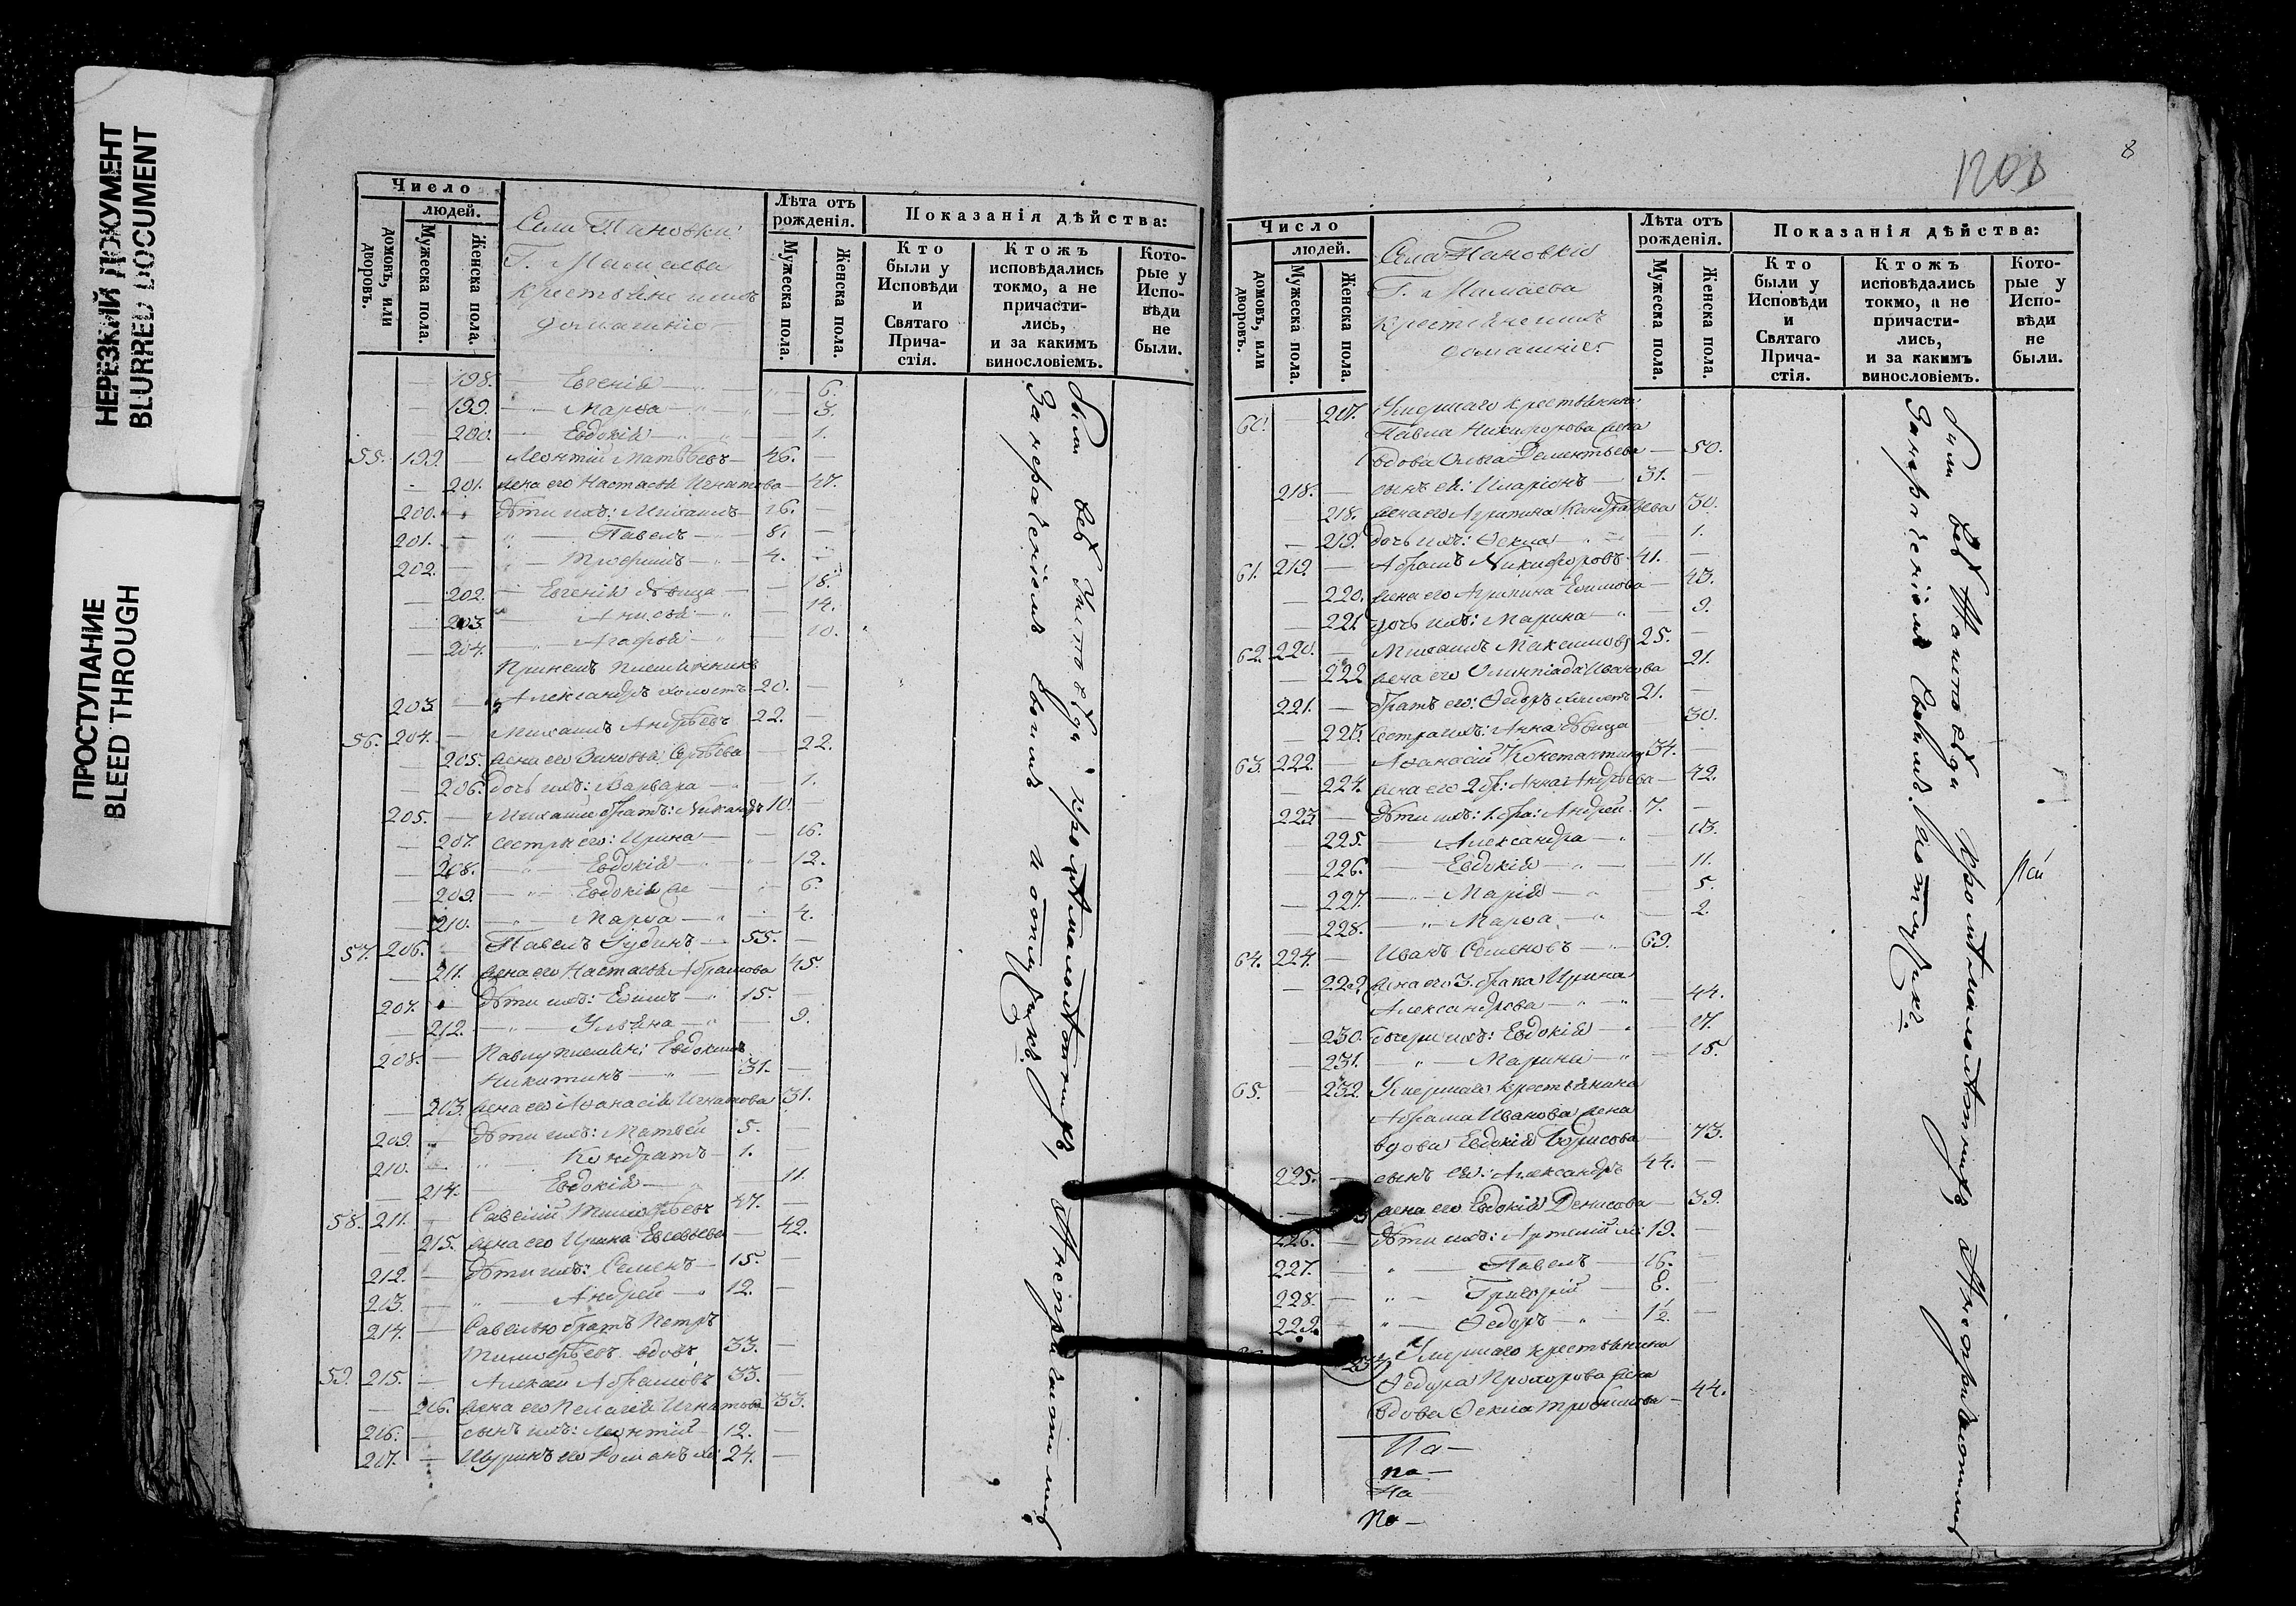 НЕРЕЗКИЙ ДОКУМЕНТ
BLURRED DOCUMENT
ПРОСТУПАНИЕ
BLEED THROUGH
Число
людей.
домовъ, или дворовъ.
Мужеска пола.
Женска пола.
Села Пановки
Г. Мамаева
крестьяне и ихъ
домашніе
Лѣта отъ рожденія.
Мужеска пола.
Женска пола.
Показанія дѣйства:
Кто были у Исповѣди и Святаго Причастія.
Ктожъ исповѣдались токмо, а не причастились, и за какимъ винословіемъ.
Которые у Исповѣди не были.
— 198. — Евгенія — 6.
— 199. — Марѳа — 3.
— 200. — Евдокія — 1.
55. 199. — Леонтій Матвѣевъ — 46. —
— 201. жена его Настасья Игнатова — 47.
200. — дѣти ихъ: Михаилъ — 16. —
201. — Павелъ — 8. —
202. — Трофимъ — 4. —
— 202. — Евгенія дѣвица — 18.
— 203. — Анисья — 14.
— 204. — Агафья — 10.
Племянникъ
203. — Александръ холостъ 20. —
56. 204. — Михаилъ Андрѣевъ 22. —
— 205. жена его Зиновья Сергѣева — 22.
— 206. дочь ихъ: Варвара — 1.
205. — Михаила братъ: Никандръ 10. —
— 207. сестры его: Ирина — 16.
— 208. — Евдокія — 12.
— 209. — Евдокія же — 6.
— 210. — Марѳа — 4.
57. 206. — Павелъ Іудинъ — 55. —
— 211. жена его Настасья Абрамова 45.
207. — дѣти ихъ: Ефимъ — 15. —
— 212. — Ульяна — 9.
208. — Павлу племян: Евдокимъ
Никитинъ — 31. —
— 213. жена его Афанасія Игнатова 31.
209. — дѣти ихъ: Матвей 5. —
210. — Кондратъ — 1. —
— 214. — Евдокія — 11.
58. 211. — Савелій Тимофѣевъ 47. —
— 215. жена его Ирина Евсевьева — 42.
212. — дѣти ихъ: Семенъ — 15. —
213. — Андрей — 12. —
214. — Савелью братъ Петръ
Тимофѣевъ вдовъ 33. —
59. 215. — Алексѣй Абрамовъ 33. —
— 216. жена его Пелагія Игнатова 33.
216. — сынъ ихъ: Леонтій 12. —
217. — Шуринъ его Романъ хо: 24. —
Были всѣ у исповѣди, кромѣ малолѣтнихъ, а не пріобщились
За нераченіемъ своимъ и отлучкою
8
Число
людей.
домовъ, или дворовъ.
Мужеска пола.
Женска пола.
Села Пановки
Г. Мамаева
Крестьяне и ихъ
домашніе
Лѣта отъ рожденія.
Мужеска пола.
Женска пола.
Показанія дѣйства:
Кто были у Исповѣди и Святаго Причастія.
Ктожъ исповѣдались токмо, а не причастились, и за какимъ винословіемъ.
Которые у Исповѣди не были.
60. — 217. Умершаго крестьянина
Павла Никифорова жена
вдова Ольга Дементьева — 50.
218. — сынъ ея: Иларіонъ — 31. —
— 218. жена его Агрипина Кондратьева 30.
— 219. дочь ихъ: Ѳекла — 1.
61. 219. — Абрамъ Никифоровъ 41. —
— 220. жена его Агрипина Ефимова — 43.
— 221. дочь ихъ: Марина — 9.
62. 220. — Михаилъ Максимовъ 25. —
— 222. жена его Олимпіада Иванова 21.
221. — братъ его: Ѳедоръ холостъ 21. —
— 223. сестра ихъ: Анна дѣвица — 30.
63. 222. — Афанасій Константиновъ 34. —
— 224. жена его 2 бр: Анна Андрѣева — 42.
223. — дѣти ихъ: 1. бра: Андрей 7. —
225. — Александра — 13.
— 226. — Евдокія — 11.
— 227. — Марія — 5.
— 228. — Марѳа — 2.
64. 224. — Иванъ Семеновъ — 69.
— 229. жена его 3. брака Ирина
Александрова — 44.
— 230. дочери ихъ: Евдокія — 17.
— 231. — Марина — 15.
65. — 232. Умершаго крестьянина
Абрама Иванова жена
вдова Евдокія Борисова — 73.
225. — сынъ ея: Александръ 44. —
— жена его Евдокія Денисова — 39.
226. — дѣти ихъ: Артемій хо: 19. —
227. — Павелъ — 16. —
228. — Григорій — 8. —
229. — Ѳедоръ — 1½ —
Умершаго крестьянина
Ѳедора Прохорова жена
вдова Ѳекла Трофимова — 44.
Па —
па —
На —
По —
Были всѣ у исповѣди кромѣ малолѣтнихъ а не пріобщились
За нераченіемъ своимъ и отлучкою.